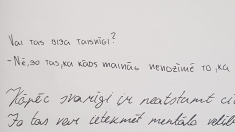 Vai tas bija taisnīgi?
-Nē, jo tas, ka kāds mainās nenozīmē to, ka
Kāpēc svarīgi ir neatstumt ci
Jo tas var ietekmēt mentālo